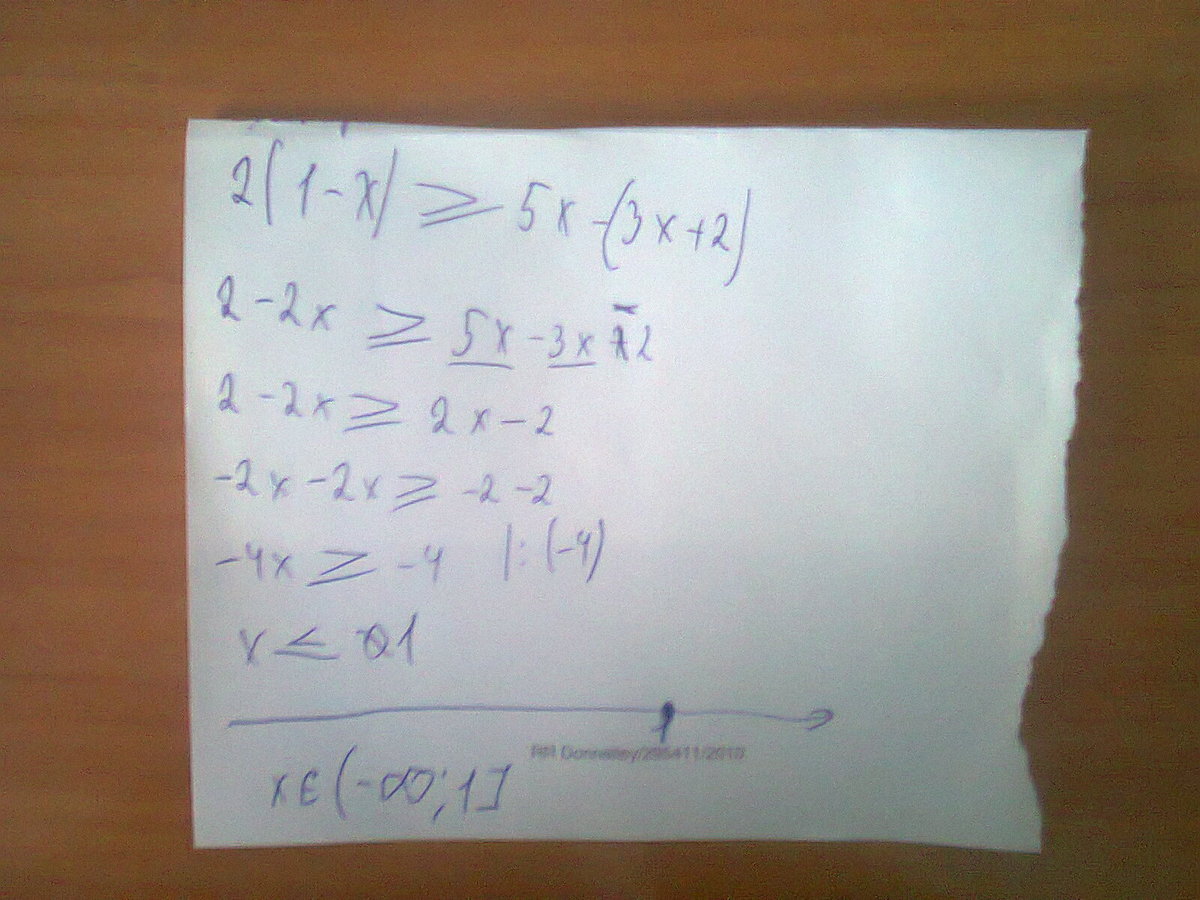 2(1-x) ≥ 5x-(3x+2)
2-2x ≥ 5x-3x-2
2-2x ≥ 2x-2
-2x-2x ≥ -2-2
-4x ≥ -4 |:(-4)
x ≤ 1
1
RR Donnelley/285411/2010
x∈(-∞;1]